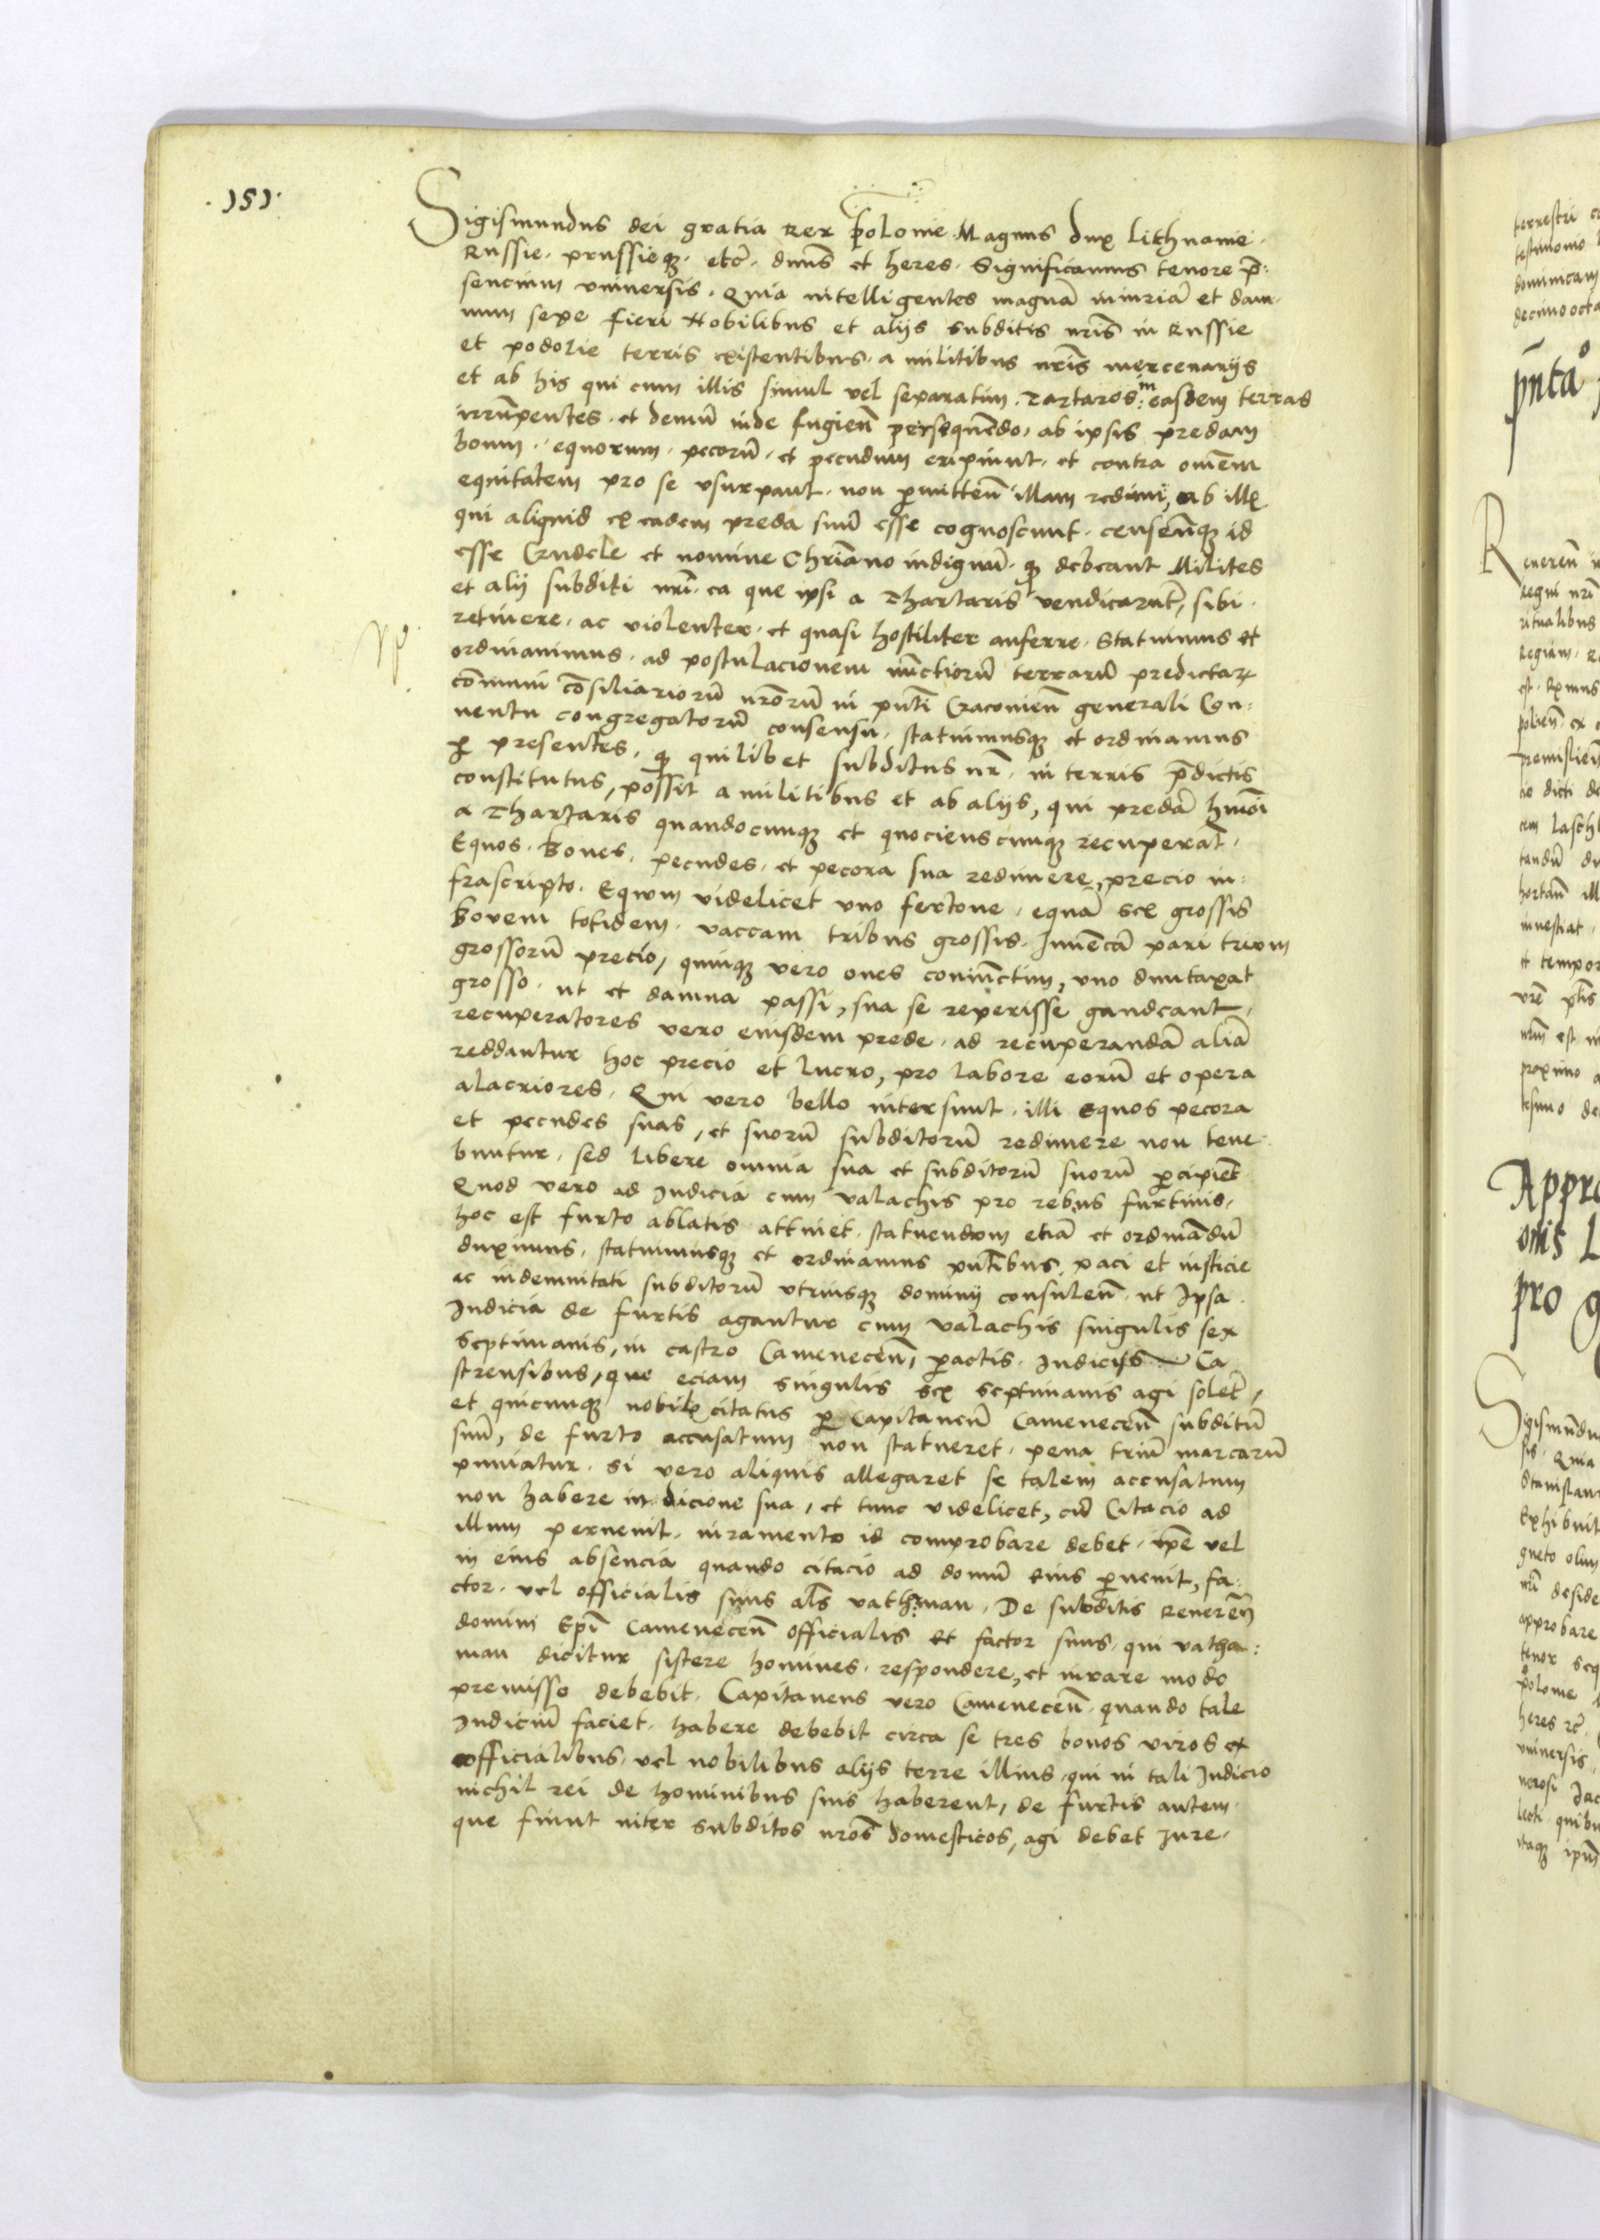 ·151·
Sigismundus dei gratia Rex polonie Magnus dux Lithuanie·
Russie· prussieqʒ· etc̄· dn̄us et heres· Significamus tenore p̄:
sencium vniuersis· Quia intelligentes magnā iniuriā et dam·
num sepe fieri Nobilibus et aliis subditis nr̄is in Russie
et podolie terris existentibus· a militibus nr̄is mercenariis
et ab his qui cum illis simul vel separatim· Tartaros in easdem terras
irrūpentes· et demū inde fugien̄ persequēdo, ab ipsis predam
boum· equorum· pecorū· et pecudum eripiunt· et contra om̄em
equitatem pro se vsurpant· non ꝑmitten̄ illam redimi, ab illꝭ
qui aliquid ex eadem preda suū esse cognoscunt· censen̄qʒ id
esse Crudele et nomine Chr̄iano indignū· qʒ debeant Milites
et alij subditi nr̄i· ea que ipsi a Thartaris vendicarūt, sibi·
retinere· ac violenter· et quasi hostiliter auferre· Statuimus et
ordinauimus· ad postulacionem nūctiorū terrarū predictaꝝ
cōmuni cōsiliariorū nr̄orū in pn̄ti Cracouien̄ generali Con:
uentu congregatorū consensu· statuimusqʒ et ordinamus
ꝑ presentes· qʒ quilibet subditus nr̄· in terris p̄dictis
constitutus, possit a militibus et ab aliis, qui predā hmōi
a Thartaris quandocunqʒ et quocienscunqʒ recuperāt·
Equos· Boues· pecudes· et pecora sua redimere, precio in:
frascripto· Equum videlicet vno fertone· equā sex grossis
Bouem totidem· vaccam tribus grossis· Iuuēcā pari trium
grossorū precio, quinqʒ vero oues coniūctim, vno dumtaxat
grosso· ut et damna passi, sua se reperisse gaudeant·
recuperatores vero eiusdem prede· ad recuperandā aliā
reddantur hoc precio et lucro, pro labore eorū et opera
alacriores· Qui vero bello intersunt· illi Equos pecora
et pecudes suas, et suorū subditorū redimere non tene·
buntur· sed libere omnia sua et subditorū suorū ꝑcipient·
Quod vero ad Iudicia cum valachis pro rebus furtiuis·
hoc est furto ablatis attinet· statuendum etiā et ordinādū
duximus· statuimusqʒ et ordinamus pn̄tibus· paci et iusticie
ac indemnitati subditorū vtriusqʒ dominij consulen̄· ut Ipsa·
Iudicia de furtis agantur cum valachis singulis sex
septimanis, in castro Camenecen̄, ꝑactis· Iudiciis Ca
strensibus, que eciam singulis sex septimanis agi solēt,
et quicunqʒ nobilꝭ citatus ꝑ Capitaneū Camenecen̄ subditū
suū, de furto accusatum non statueret· pena triū marcarū
puniatur· Si vero aliquis allegaret se talem accusatum
non habere in dicione sua, et tunc videlicet, cū Citacio ad
illum peruenit· iuramento id comprobare debet· ip̄e vel
in eius absencia quando citacio ad domū eius ꝑuenit, fa:
ctor· vel officialis suus al̄s vathaman· De subditis Reueren̄
domini Ep̄i Camenecen̄ officialis et factor suus· qui vatha:
man dicitur sistere homines· respondere, et iurare modo
premisso debebit· Capitaneus vero Camenecen̄· quando tale
Iudiciū faciet· habere debebit circa se tres bonos viros ex
officialibus· vel nobilibus aliis terre illius· qui in tali Iudicio
nichil rei de hominibus suis haberent, de furtis autem·
que fiunt inter Subditos nr̄os domesticos, agi debet Iure·
terrestri
testimonio
dominicam
decimoocta
Reueren̄
regni nr̄i
ritualibus
Regiam·
Premislien̄
io dicti
cem Lasch
tandū
hortan̄ ill
inuestiat·
et tempor
proximo
Appro
onis L
pro
Sigismūdu
sis· Quia
Stanislau
Exhibuit
gneto olim
nū deside
approbare
tenor seq
polonie
heres
vniuersis
nerosi Jac
lecti quibu
itaqʒ ipm̄